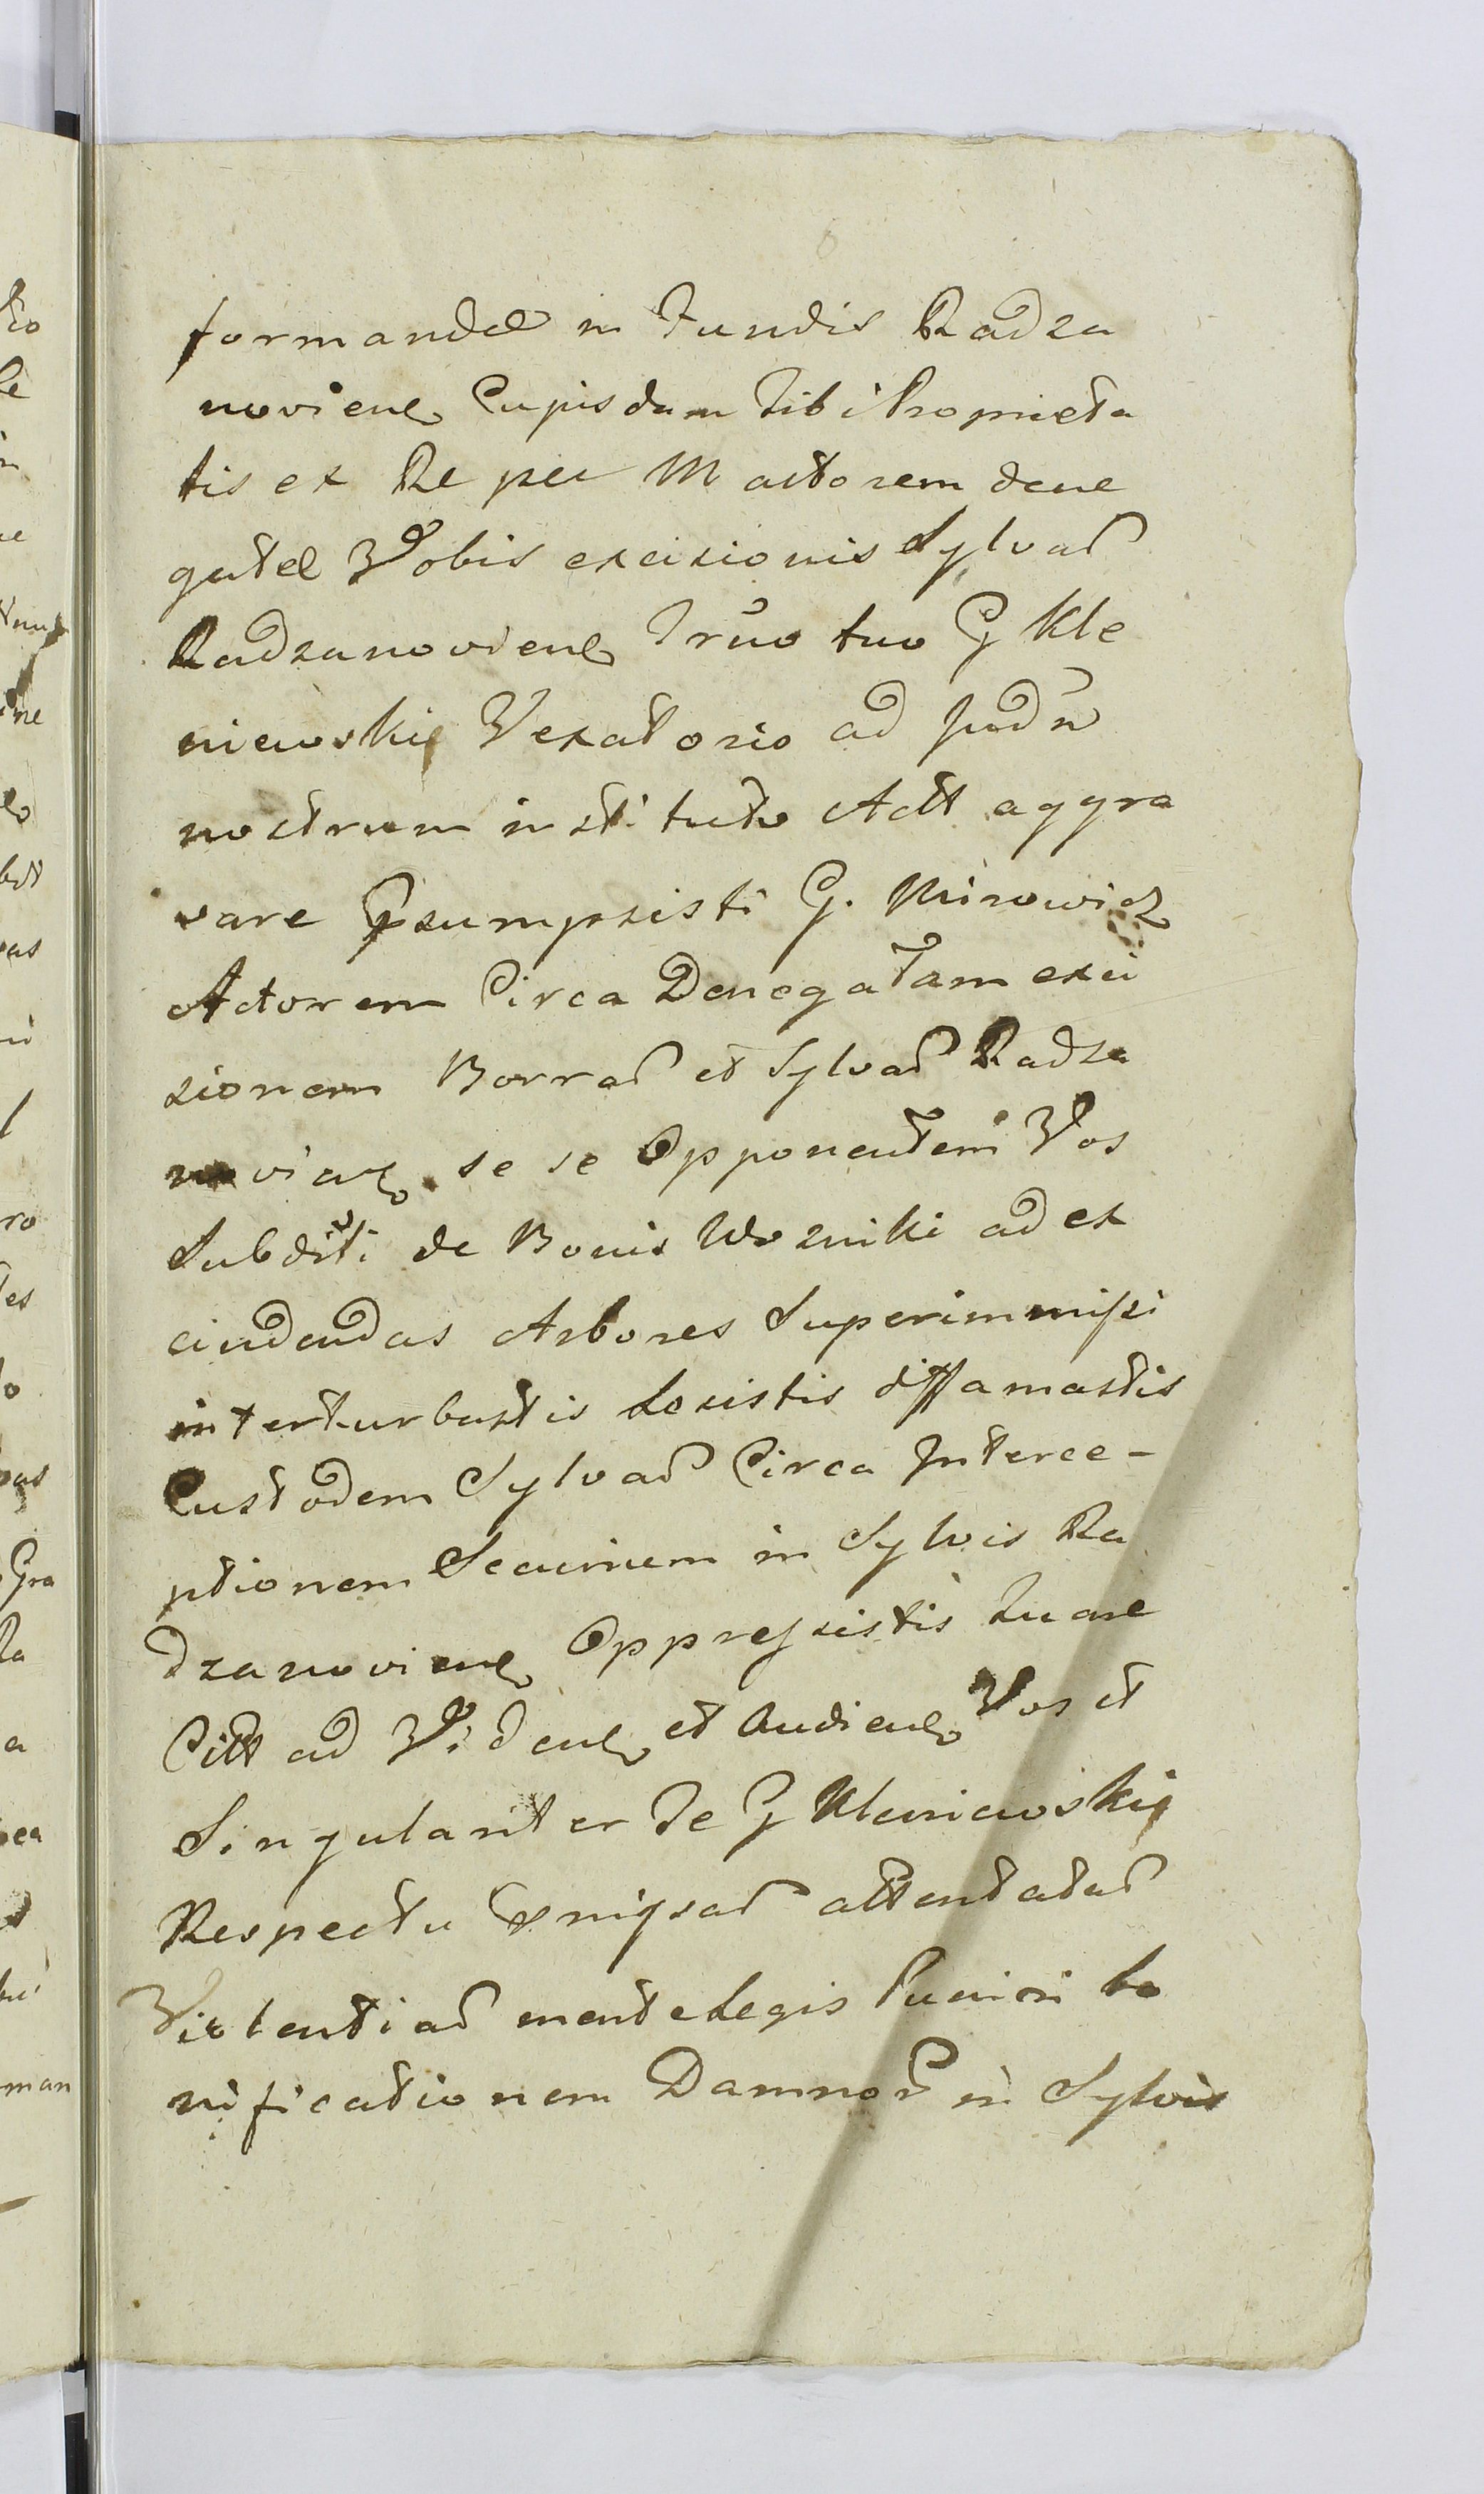 formandae in Fundis Radza
noviens Cujusdam Tibi Proprieta
tis ex Re per M actorem dene
gatae Vobis excisionis Sylvar
Radzanoviens Tr̃no tuo G Kle
niewskij Vexatorio ad Judm̃
nostrum instituto Actt aggra
vare Psumpsisti G. Mirowicz
Actorem Circa Denegatam exci
sionem Borrar et Sylvar Radza
noviens se se Opponentem Vos
Subditi de Bonis Wozniki ad ex
cindendas Arbores Superimmissi
interturbastis Lesistis diffamastis
Custodem Sylvar Circa Interce-
ptionem Securium in Sylvis Ra
dzanoviens Oppressistis Quare
Citt ad Videns et Audiens Vos et
Singulanter Te G Kleniewskij
Respectu attentatar
Violentiar mente Legis Puniri bo
nificationem Damnor in Sylvis